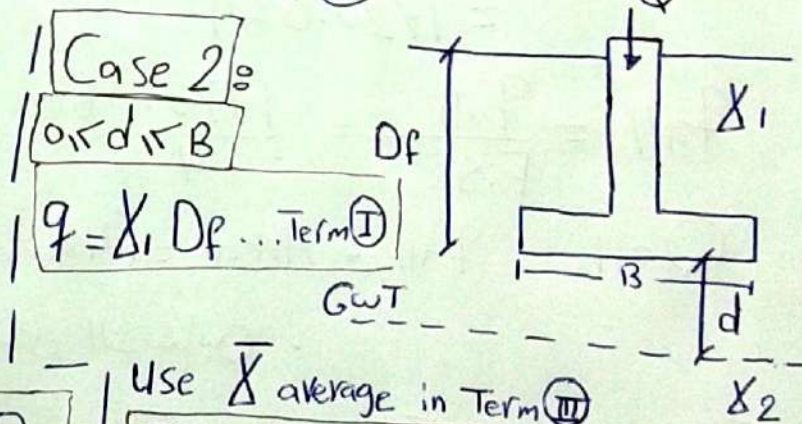 Case 2:
0 ≤ d ≤ B
q = γ₁ Df ... Term Ⅰ
Df
γ₁
B
d
GWT
use γ̄ average in Term Ⅲ
γ₂